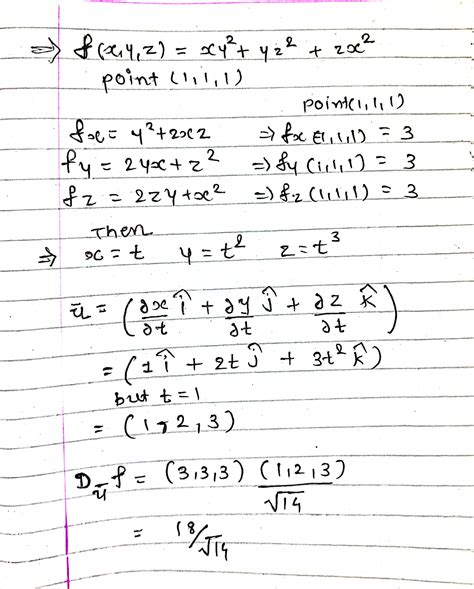 ⇒ f(x,y,z) = xy² + yz² + zx²
point (1,1,1)
point(1,1,1)
fx = y²+2xz ⇒ fx (1,1,1) = 3
fy = 2yx+z² ⇒ fy (1,1,1) = 3
fz = 2zy+x² ⇒ fz (1,1,1) = 3
Then
⇒ x = t y = t² z = t³
ū = (∂x/∂t î + ∂y/∂t ĵ + ∂z/∂t k̂)
= (1î + 2t ĵ + 3t² k̂)
but t = 1
= (1,2,3)
D_ū f = (3,3,3) (1,2,3)/√14
= 18/√14